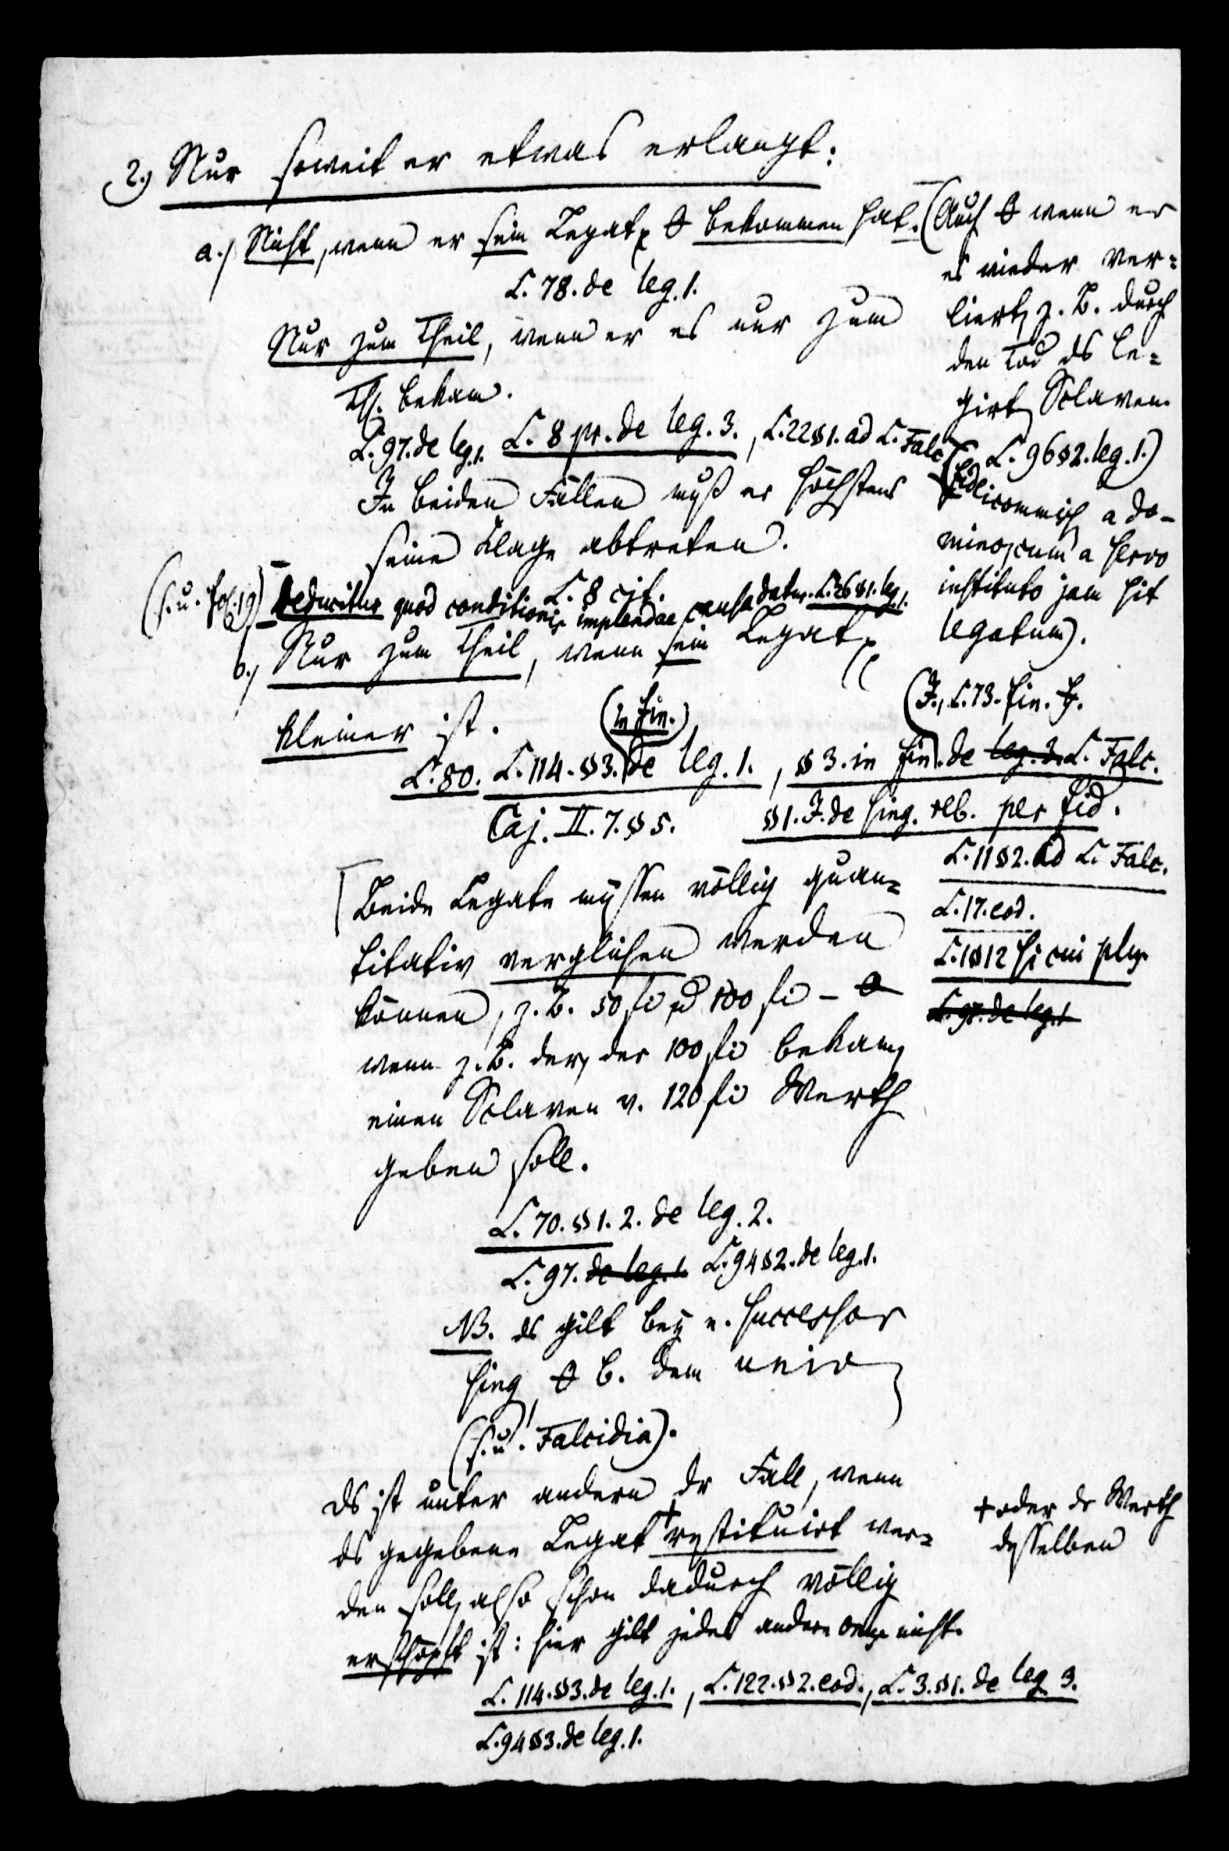 2.) Nur soweit er etwas erlangt:
a.) Nicht, wenn er sein Legat bekommen hat.
L. 78. de leg. 1.
Nur zum Theil, wenn er es nur zum
Th. bekam.
L. 97. de leg. 1. L. 8 pr. de leg. 3., L. 22 § 1. ad L. Falc.
In beiden Fällen muß er höchstens
seine Klage abtreten.
L. 8 cit.
(s. u. fol. 19) deducitur quod conditionis implendae causa datur. L. 26 § 1. leg. 1.
b.) Nur zum Theil, wenn sein Legat
kleiner ist.
(in fin.)
L. 80. L. 114. § 3. de leg. 1., § 3. in fin. de leg. 3. L. Falc.
Caj. II. 7. § 5. § 1. J. de sing. reb. per fid.
Beide Legate müssen völlig quan=
titativ verglichen werden
können, z. B. 50 fl und 100 fl –
wenn z. B. der, der 100 fl bekam,
einen Sclaven v. 120 fl Werth
geben soll.
L. 70. § 1. 2. de leg. 2.
L. 97. de leg. 1. L. 94 § 2. de leg. 1.
NB. ds gilt bey e. successor
sing, b. dem univ
(s. u. Falcidia).
ds ist unter andern dr Fall, wenn
ds gegebene Legat + restituirt wer=
den soll, also schon dadurch völlig
erschöpft ist: hier gilt jedes andere nicht.
L. 114. § 3. de leg. 1., L. 122. § 2. eod., L. 3. § 1. de leg 3.
L. 94 § 3. de leg. 1.
(Auch wenn er
es wieder ver=
liert, z. B. durch
den Tod ds le=
girt Sclaven.
L. 96 § 2. leg. 1.)
(Fideicommiss a do-
mino, cum a servo
instituto jam sit
legatum).
L. 73. fin.
L. 11 § 2. ad L. Falc.
L. 17. eod.
L. 1 § 12 si cui plus
L. 97. de leg. 1
+ oder dr Werth
desselben